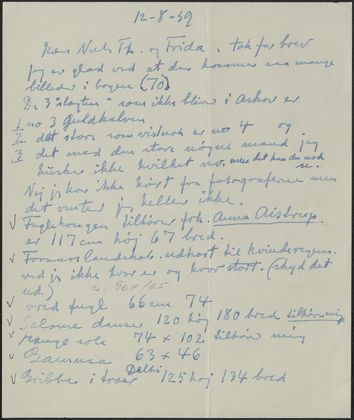 12-8-59
Kære Niels Th. og Frida. tak for brev
jeg er glad ved at der kommer saa mange
billeder i bogen (70)
De 3 "slagten" som ikke bliver i Askov er
1 no 3 Guldkalven
2. det store som vistnok er no 4 og
3 det med den store nøgne mand jeg
husker ikke hvilket no. men det kan du nok
se.
Nej jeg har ikke hørt fra fotograferne men
det venter jeg heller ikke.
√ Fuglekongen tilhører frk. Anna Aistrup.
er 117 cm höj 67 bred.
√ Foraarslandskab. udkast til kvinderegens.
ved jeg ikke hvor er og hvor stort. (skyd det
ud.) c. 90 x 105
√ vred fugl 66 cm 74
√ Salome danser 120 høj 180 bred tilhører mig
√ Mange sole 74 x 102 tilhører mig
√ Gamma 63 x 46
√ Gribbe i træer Delhi 125 høj 134 bred